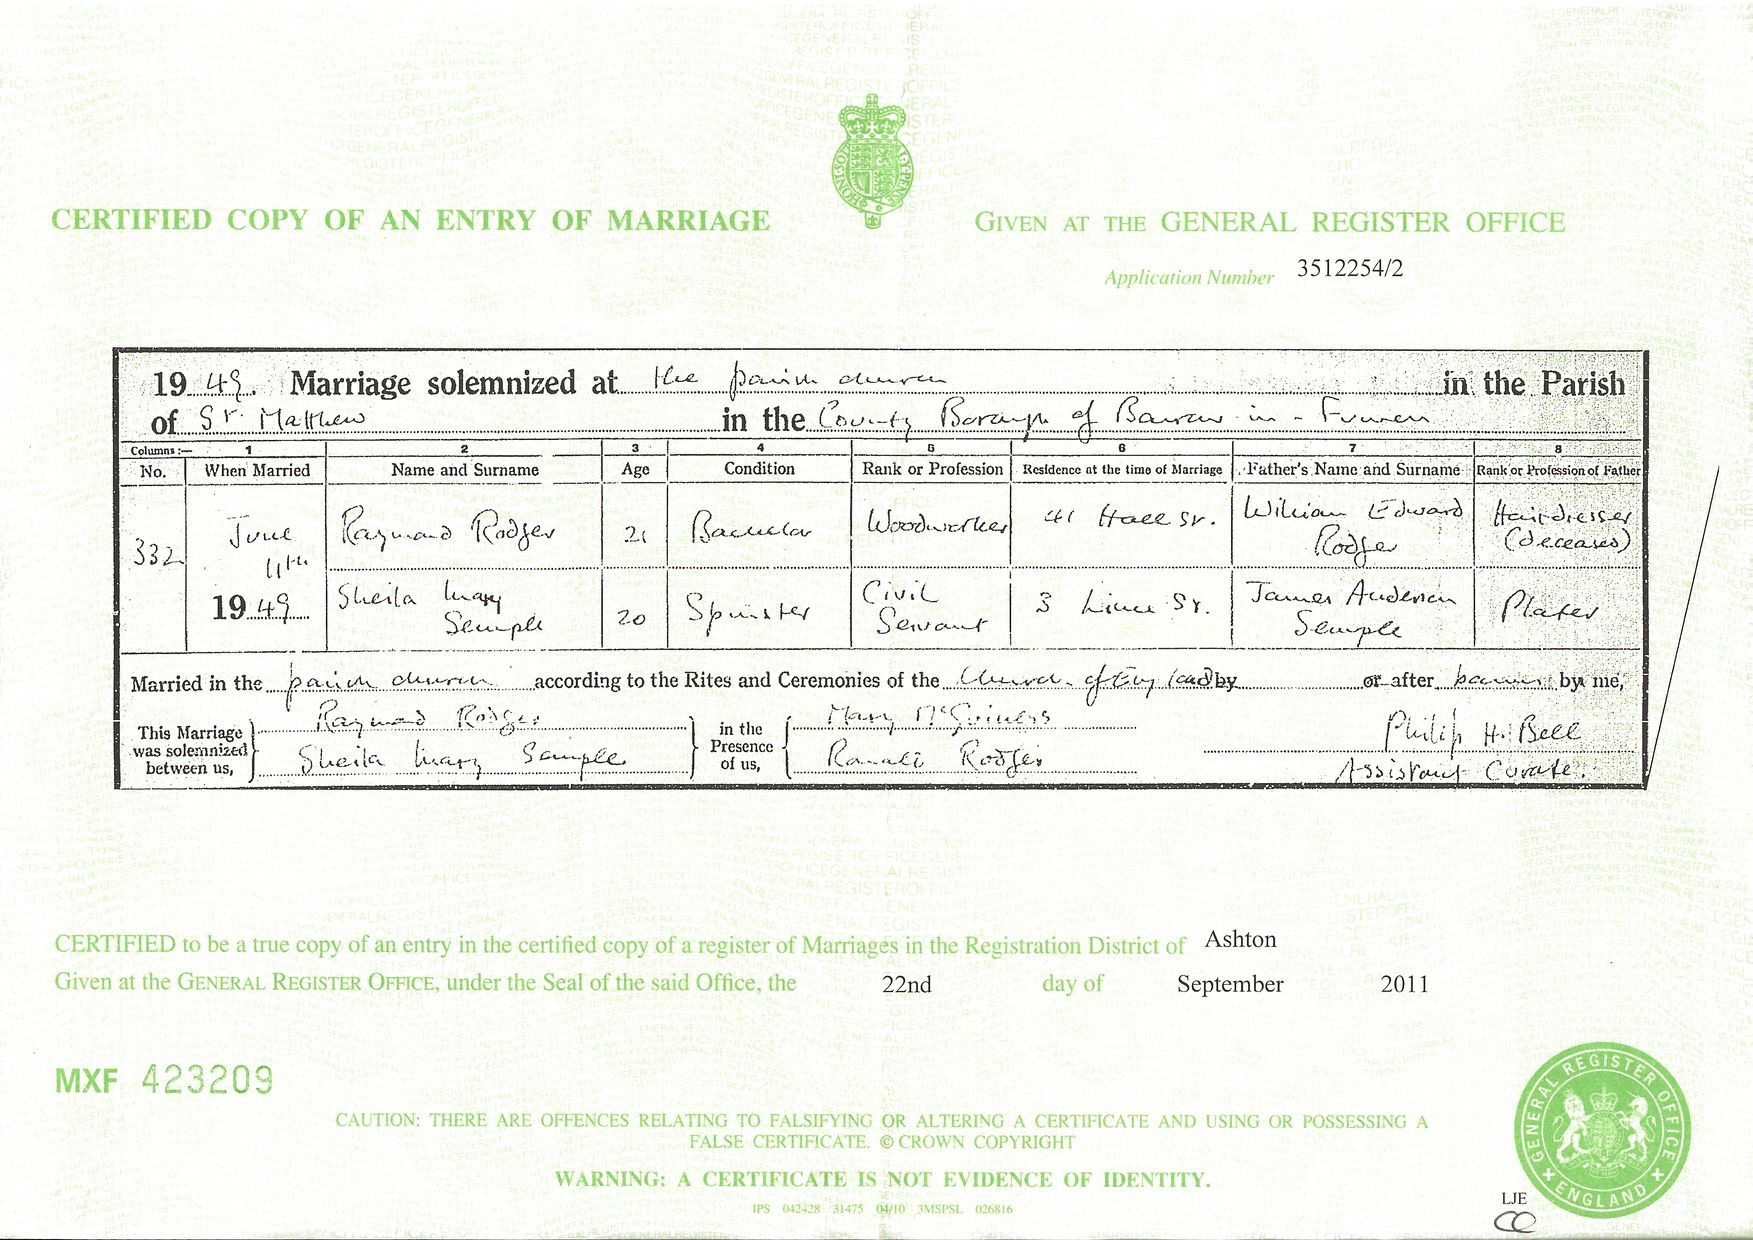 CERTIFIED COPY OF AN ENTRY OF MARRIAGE
GIVEN AT THE GENERAL REGISTER OFFICE
Application Number 3512254/2
1949. Marriage solemnized at the parish church in the Parish
of St. Matthew in the County Borough of Barrow-in-Furness
Columns:— 1 2 3 4 5 6 7 8
No. When Married Name and Surname Age Condition Rank or Profession Residence at the time of Marriage Father's Name and Surname Rank or Profession of Father
332 June 11th 1949 Raymond Rodger 21 Bachelor Woodworker 41 Hall St. William Edward Rodger Hairdresser (deceased)
Sheila Mary Semple 20 Spinster Civil Servant 3 St. James Anderson Semple Plater
Married in the parish church according to the Rites and Ceremonies of the Church of England by or after banns by me,
This Marriage was solemnized between us,
Raymond Rodger
Sheila Mary Semple
in the Presence of us,
Mary McGuiness
Ronald Rodger
Philip H. Bell
Assistant Curate.
CERTIFIED to be a true copy of an entry in the certified copy of a register of Marriages in the Registration District of Ashton
Given at the GENERAL REGISTER OFFICE, under the Seal of the said Office, the 22nd day of September 2011
MXF 423209
CAUTION: THERE ARE OFFENCES RELATING TO FALSIFYING OR ALTERING A CERTIFICATE AND USING OR POSSESSING A
FALSE CERTIFICATE. © CROWN COPYRIGHT
WARNING: A CERTIFICATE IS NOT EVIDENCE OF IDENTITY.
IPS 042428 31475 04/10 3MSPSL 026816
GENERAL REGISTER OFFICE
ENGLAND
LJE